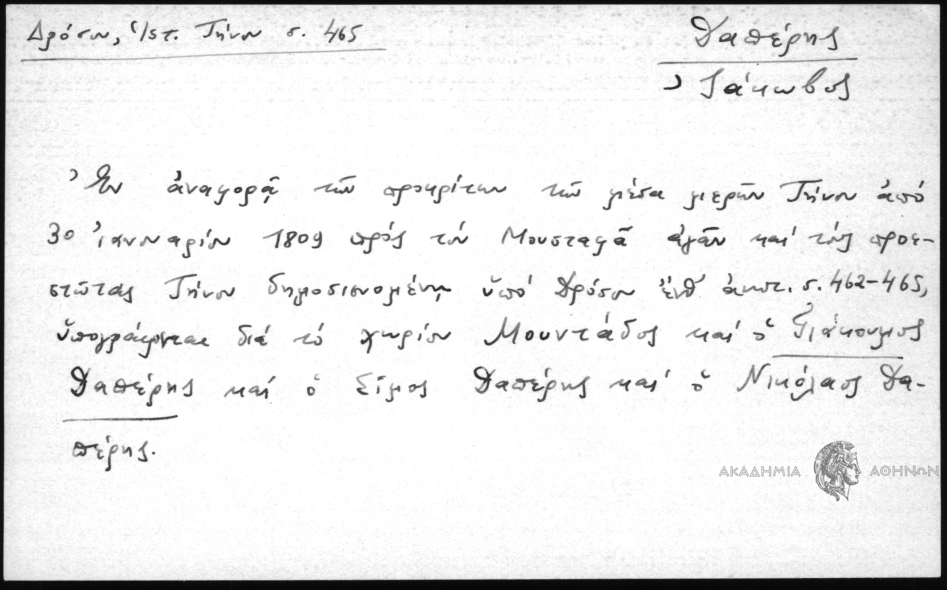 Δρόσου, Ἱστ. Τήνου σ. 465
Δαπέρης
Ἰάκωβος
Ἐν ἀναφορᾷ τῶν προκρίτων τῶν μέσα μερῶν Τήνου ἀπό
30 ἰανουαρίου 1809 πρός τόν Μουσταφᾶ ἀγᾶν καί τούς προε-
στῶτας Τήνου δημοσιευομένῃ ὑπό Δρόσου ἔνθ ἀνωτ. σ. 462-465,
ὑπογράφεται διά τό χωρίον Μουντάδος καί ὁ Γιάκουμος
Δαπέρης καί ὁ Σίμος Δαπέρης καί ὁ Νικόλαος Δα-
πέρης.
ΑΚΑΔΗΜΙΑ ΑΘΗΝΩΝ